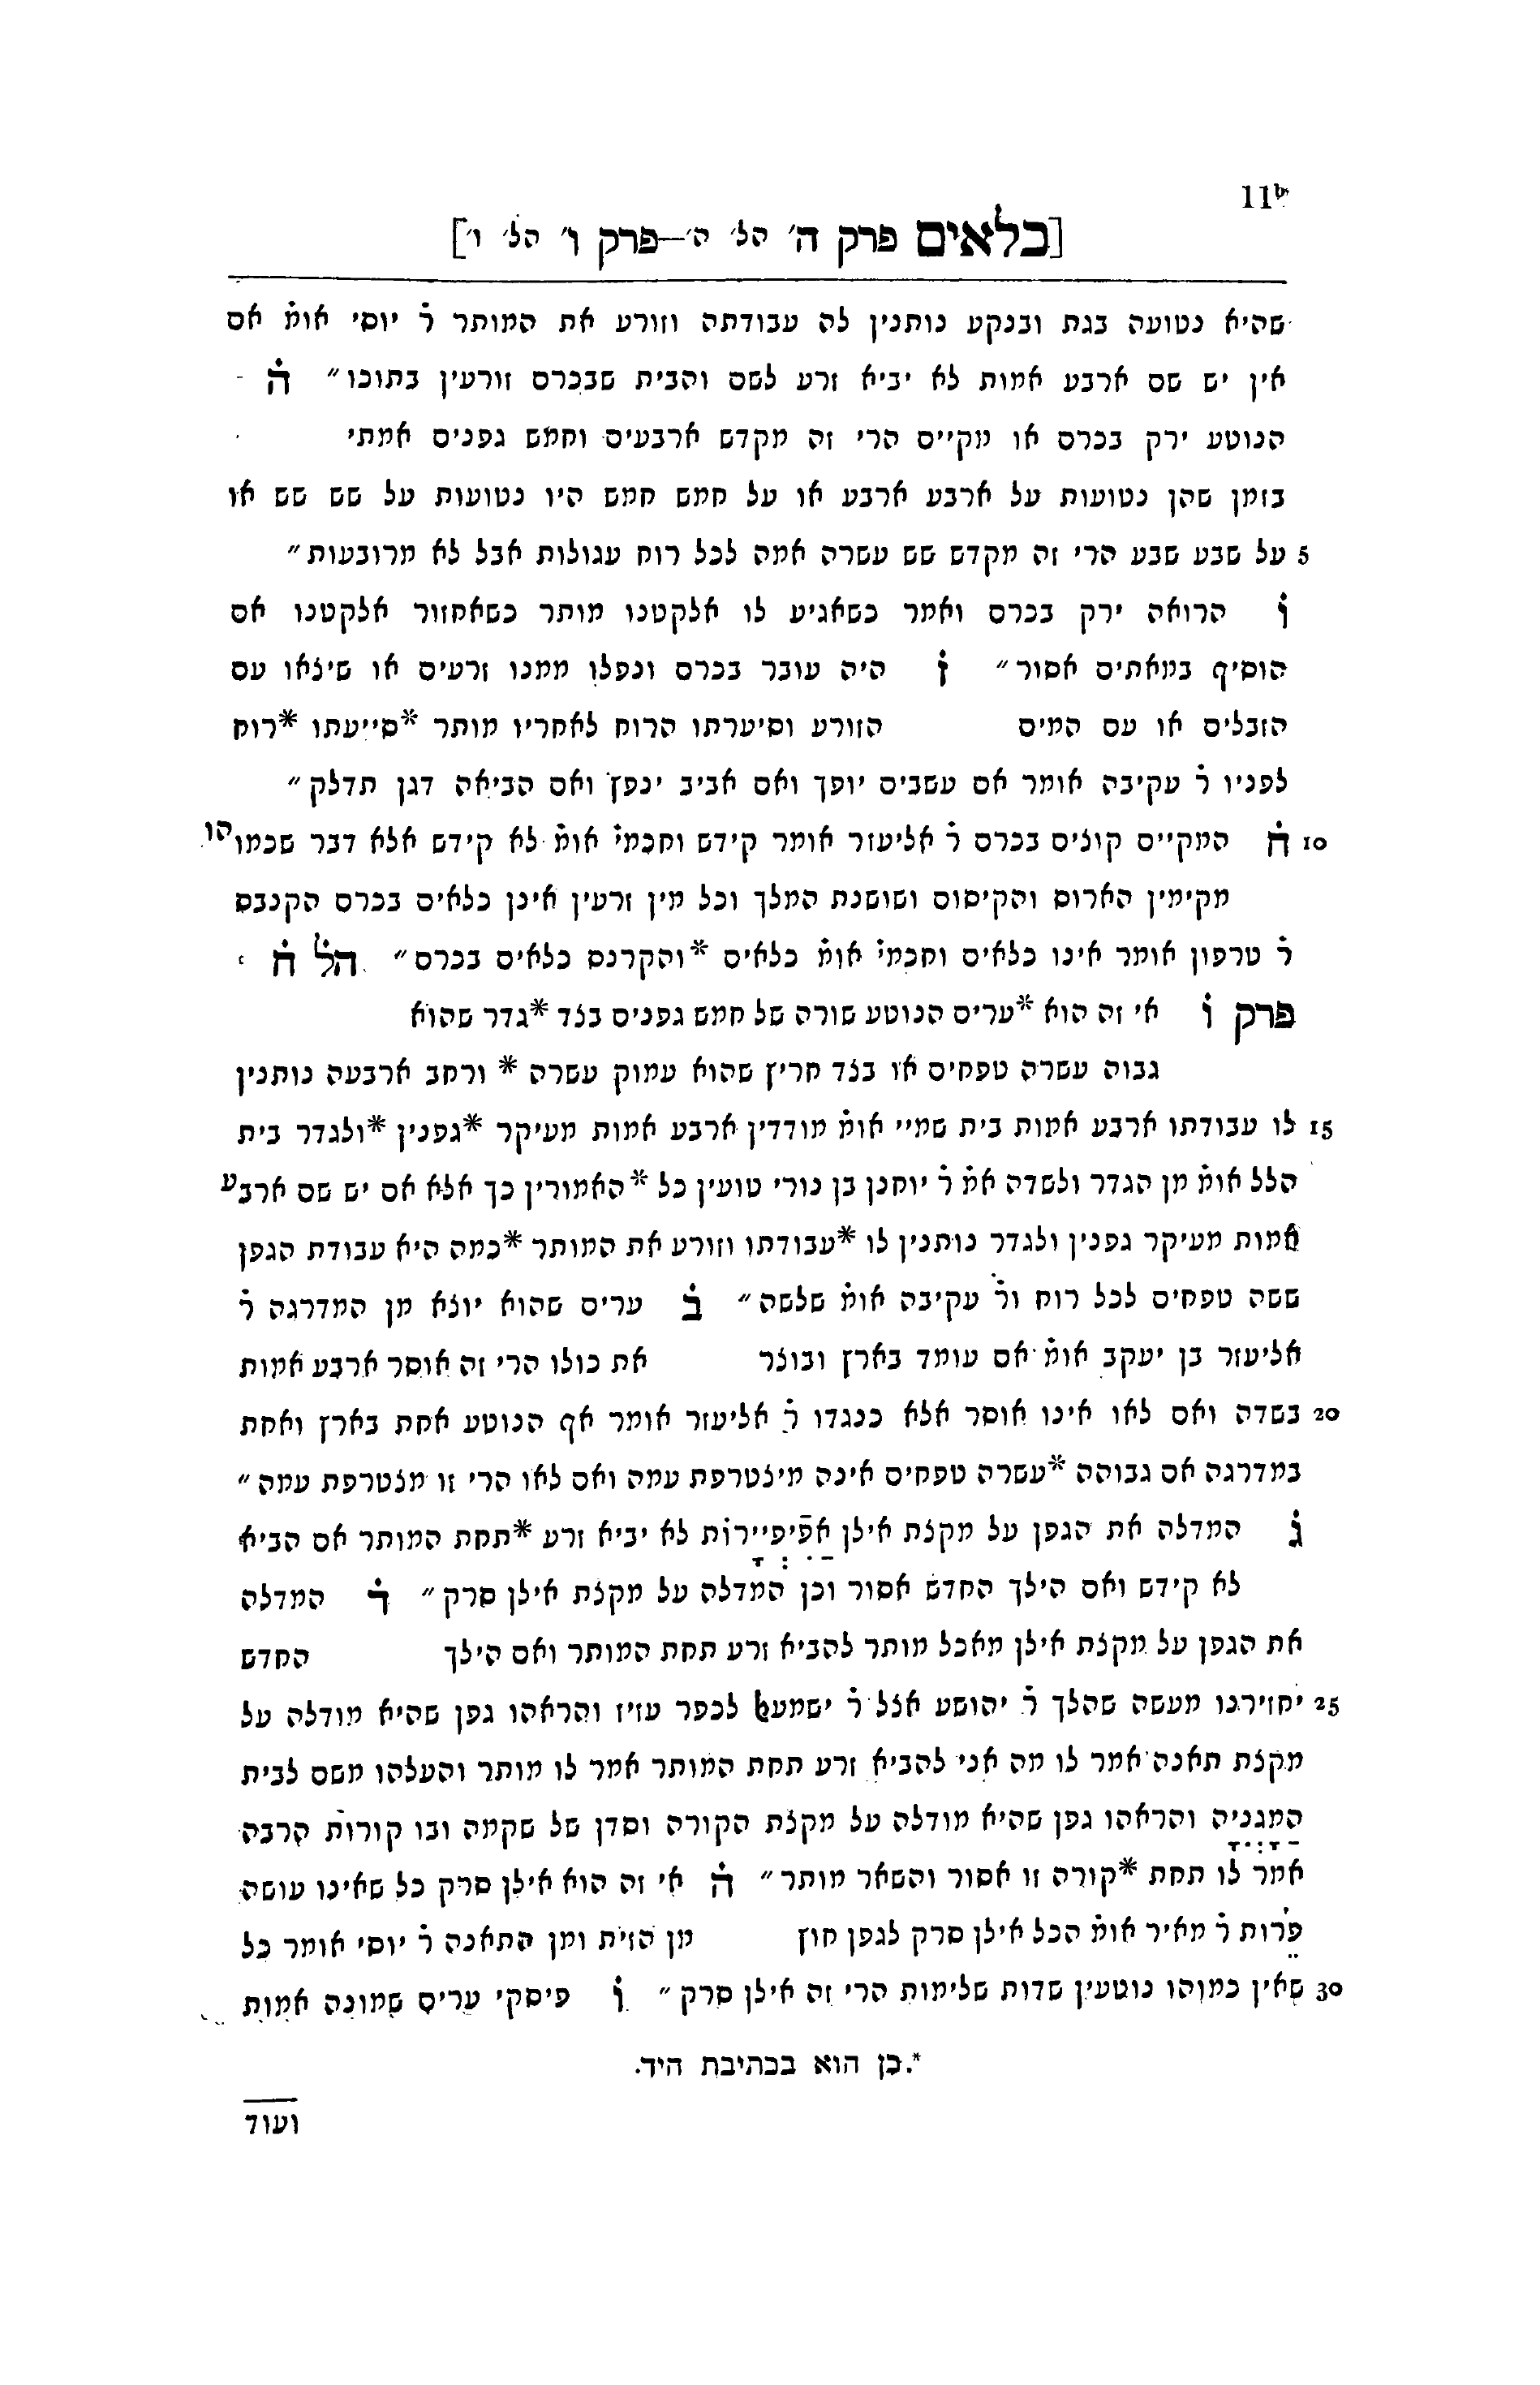 11b
[כלאים פרק ה׳ הל׳ ה׳—פרק ו׳ הל׳ ו׳]
שהיא נטועה בגת ובנקע נותנין לה עבודתה וזורע את המותר ר̇ יוסי אומ̇ אם
אין יש שם ארבע אמות לא יביא זרע לשם והבית שבכרם זורעין בתוכו״ ה̇
הנוטע ירק בכרם או מקיים הרי זה מקדש ארבעים וחמש גפנים אמתי
בזמן שהן נטועות על ארבע ארבע או על חמש חמש היו נטועות על שש שש או
5 על שבע שבע הרי זה מקדש שש עשרה אמה לכל רוח עגולות אבל לא מרובעות״
ו̇ הרואה ירק בכרם ואמר כשאגיע לו אלקטנו מותר כשאחזור אלקטנו אם
הוסיף במאתים אסור״ ז̇ היה עובר בכרם ונפלו ממנו זרעים או שיצאו עם
הזבלים או עם המים הזורע וסיערתו הרוח לאחריו מותר *סייעתו *רוח
לפניו ר̇ עקיבה אומר אם עשבים יופך ואם אביב ינפץ ואם הביאה דגן תדלק״
10 ח̇ המקיים קוצים בכרם ר̇ אליעזר אומר קידש וחכמי̇ אומ̇ לא קידש אלא דבר שכמוהו
מקימין הארוס והקיסוס ושושנת המלך וכל מין זרעין אינן כלאים בכרם הקנבס
ר̇ טרפון אומר אינו כלאים וחכמי̇ אומ̇ כלאים *והקרנס כלאים בכרם״ הל̇ ח̇
פרק ו̇ אי זה הוא *עריס הנוטע שורה של חמש גפנים בצד *גדר שהוא
גבוה עשרה טפחים או בצד חריץ שהוא עמוק עשרה * ורחב ארבעה נותנין
15 לו עבודתו ארבע אמות בית שמיי אומ̇ מודדין ארבע אמות מעיקר *גפנין *ולגדר בית
הלל אומ̇ מן הגדר ולשדה אמ̇ ר̇ יוחנן בן נורי טועין כל *האמורין כך אלא אם יש שם ארבע
אמות מעיקר גפנין ולגדר נותנין לו *עבודתו וזורע את המותר *כמה היא עבודת הגפן
ששה טפחים לכל רוח ור̇ עקיבה אומ̇ שלשה״ ב̇ עריס שהוא יוצא מן המדרגה ר̇
אליעזר בן יעקב אומ̇ אם עומד בארץ ובוצר את כולו הרי זה אוסר ארבע אמות
20 בשדה ואם לאו אינו אוסר אלא כנגדו ר̇ אליעזר אומר אף הנוטע אחת בארץ ואחת
במדרגה אם גבוהה *עשרה טפחים אינה מיצטרפת עמה ואם לאו הרי זו מצטרפת עמה״
ג̇ המדלה את הגפן על מקצת אילן אַפִּיפְיָירוֹת לא יביא זרע *תחת המותר אם הביא
לא קידש ואם הילך החדש אסור וכן המדלה על מקצת אילן סרק״ ד̇ המדלה
את הגפן על מקצת אילן מאכל מותר להביא זרע תחת המותר ואם הילך החדש
25 יחזירנו מעשה שהלך ר̇ יהושע אצל ר̇ ישמעאל לכפר עזיז והראהו גפן שהיא מודלה על
מקצת תאנה אמר לו מה אני להביא זרע תחת המותר אמר לו מותר והעלהו משם לבית
הַמָגְנִיָה והראהו גפן שהיא מודלה על מקצת הקורה וסדן של שקמה ובו קורות הרבה
אמר לו תחת *קורה זו אסור והשאר מותר״ ה̇ אי זה הוא אילן סרק כל שאינו עושה
פֵרות ר̇ מאיר אומ̇ הכל אילן סרק לגפן חוץ מן הזית ומן התאנה ר̇ יוסי אומר כל
30 שאין כמוהו נוטעין שדות שלימות הרי זה אילן סרק״ ו̇ פיסקי עריס שמונה אמות
*.כן הוא בכתיבת היד.
ועוד